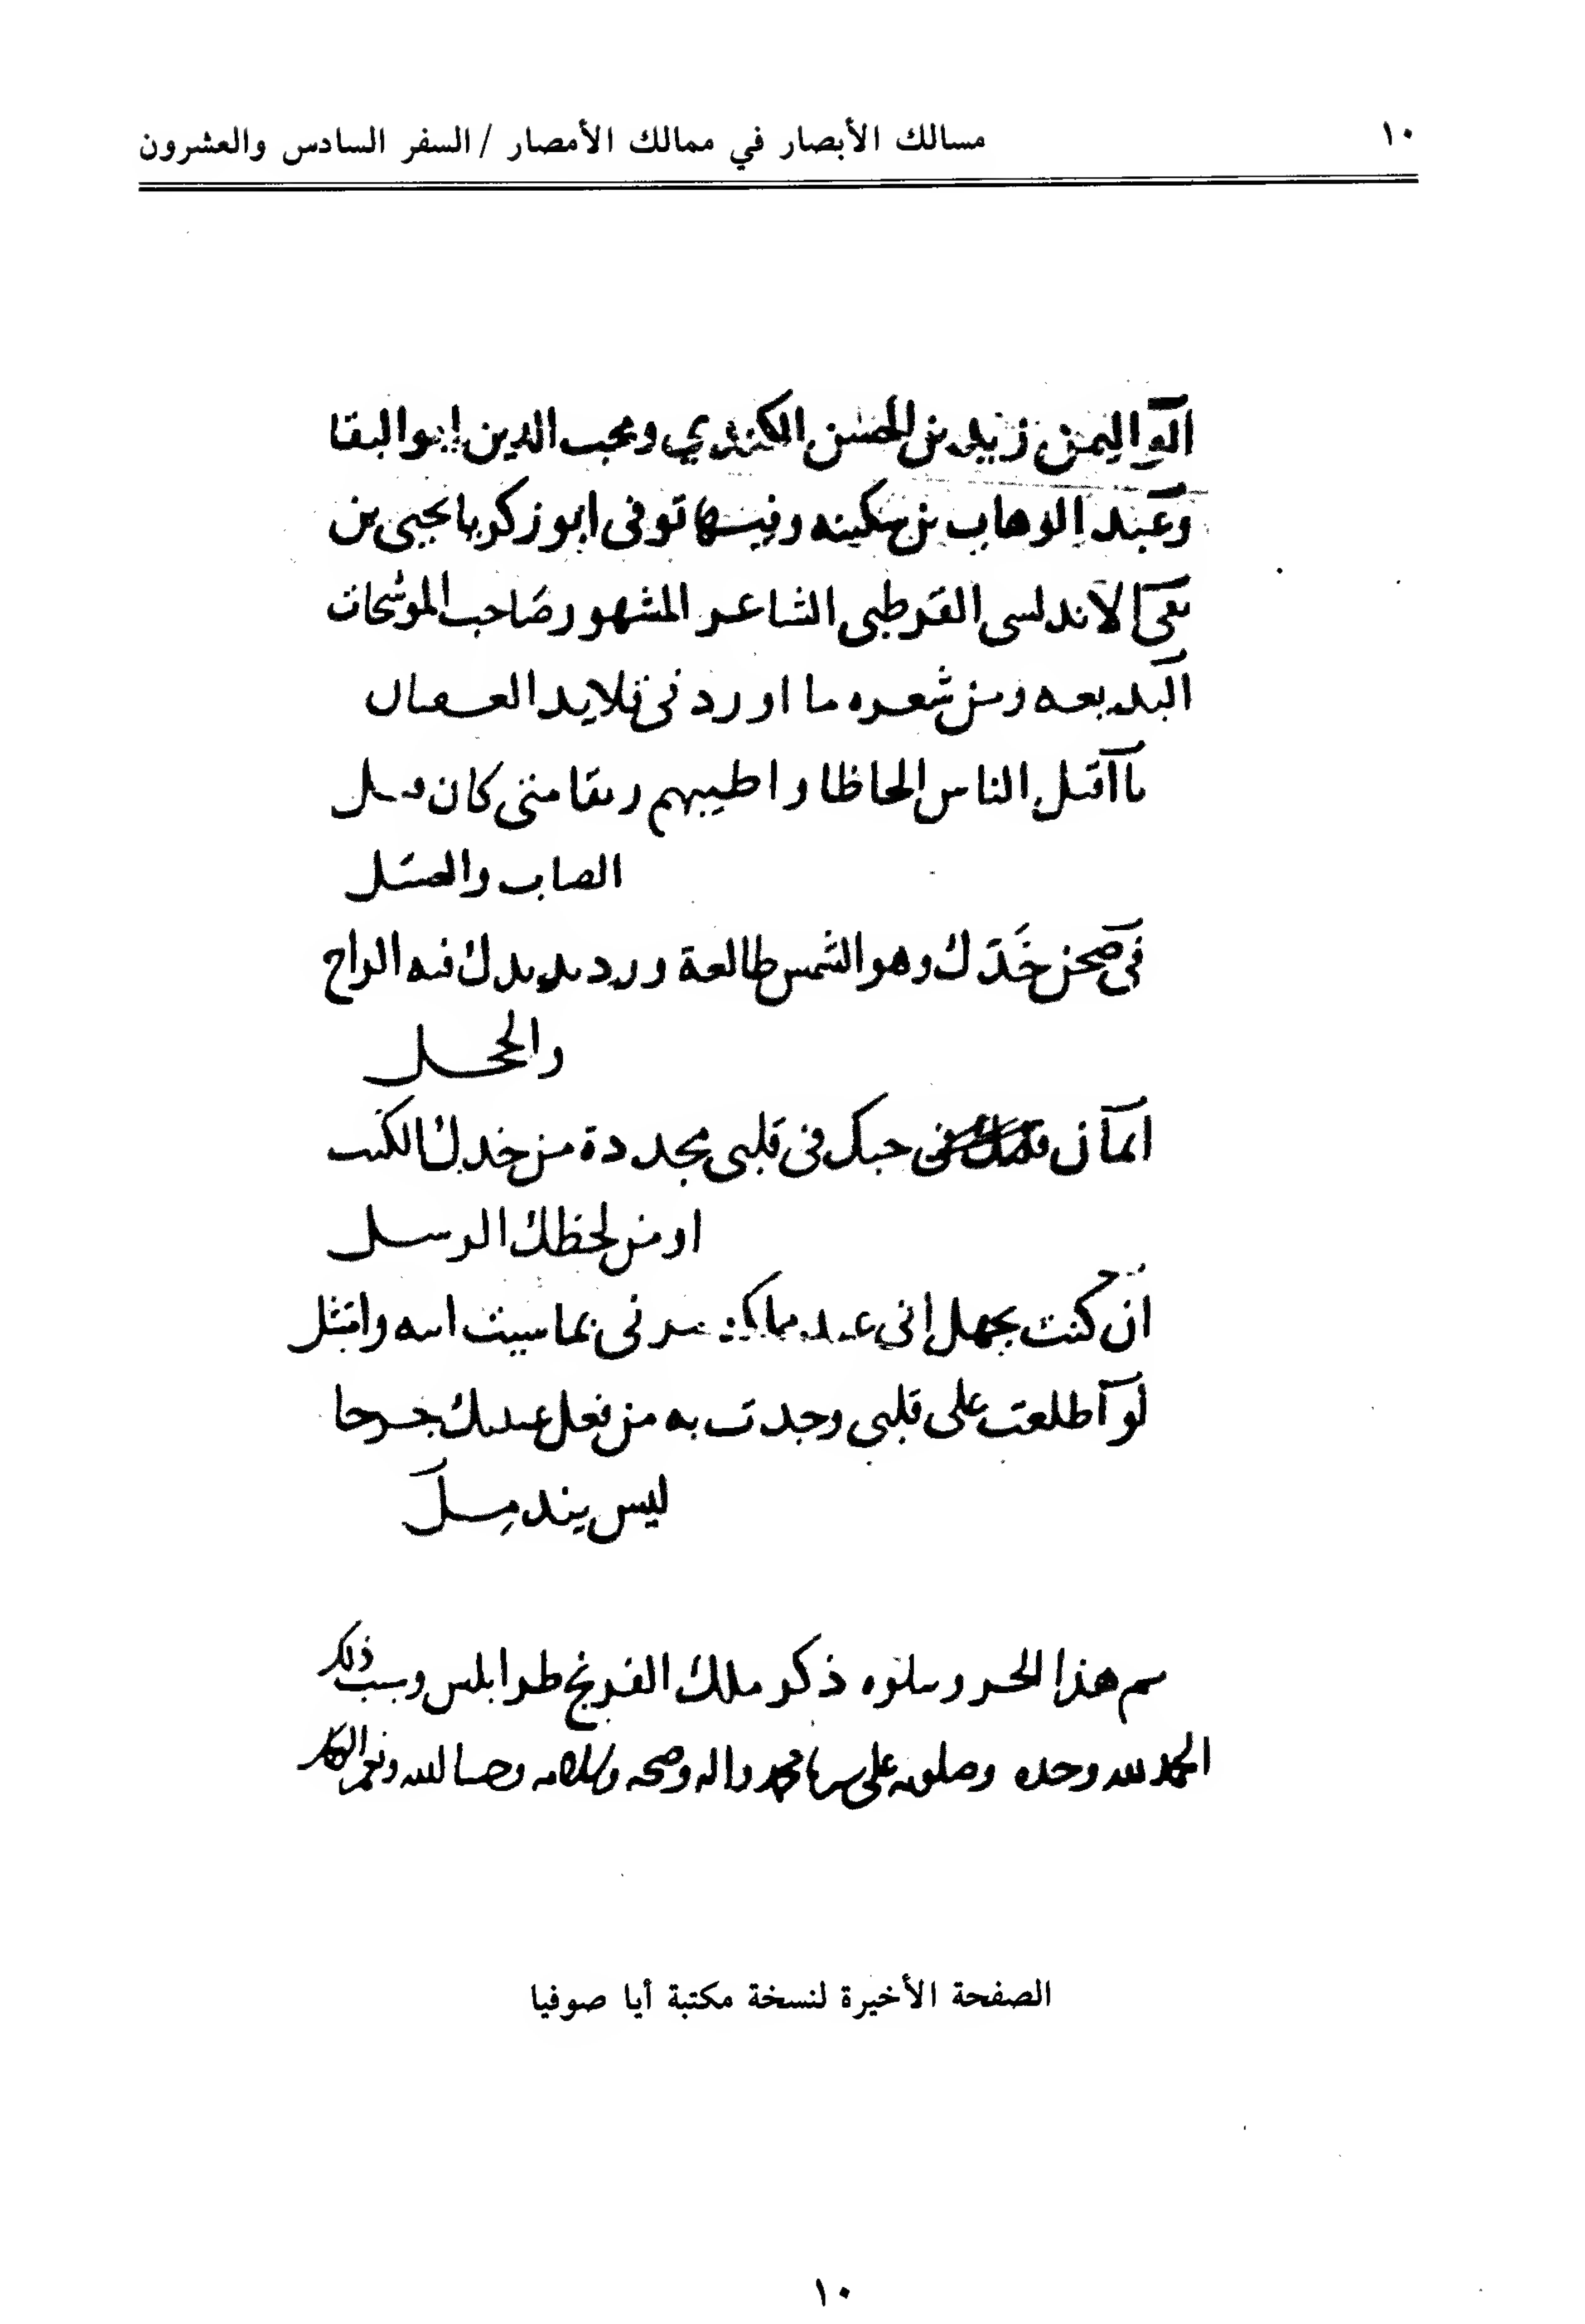 ١٠
مسالك الأبصار في ممالك الأمصار / السفر السادس والعشرون
ابو اليمن زيد بن الحسن الكندي ومحب الدين ابو البقا
وعبد الوهاب بن سكينه وفيها توفى ابو زكريا يحيى بن
بقى الاندلسى القرطبى الشاعر المشهور صاحب الموشحات
البديعه ومن شعره ما اورد فى قلايد العقيان
يا اقتل الناس الحاظا واطيبهم ريقا متى كان فيك
الصاب والعسل
فى صحن خدك وهو الشمس طالعة ورد يزيدك فيه الراح
والخجل
ايمان حبك فى قلبى مجددة من خدك الكتب
او من لحظك الرسل
ان كنت تجهل انى عبد مملكة مرنى بما شيت اته وامتثل
لو اطلعت على قلبى وجدت به من فعل عينيك جرحا
ليس يندمل
تم هذا الجزو يتلوه ذكر ملك الفرنج طرابلس وسبب ذلك
الحمد لله وحده وصلوته على سيدنا محمد واله وصحبه وسلامه وحسبنا الله ونعم الوكيل
الصفحة الأخيرة لنسخة مكتبة أيا صوفيا
١٠